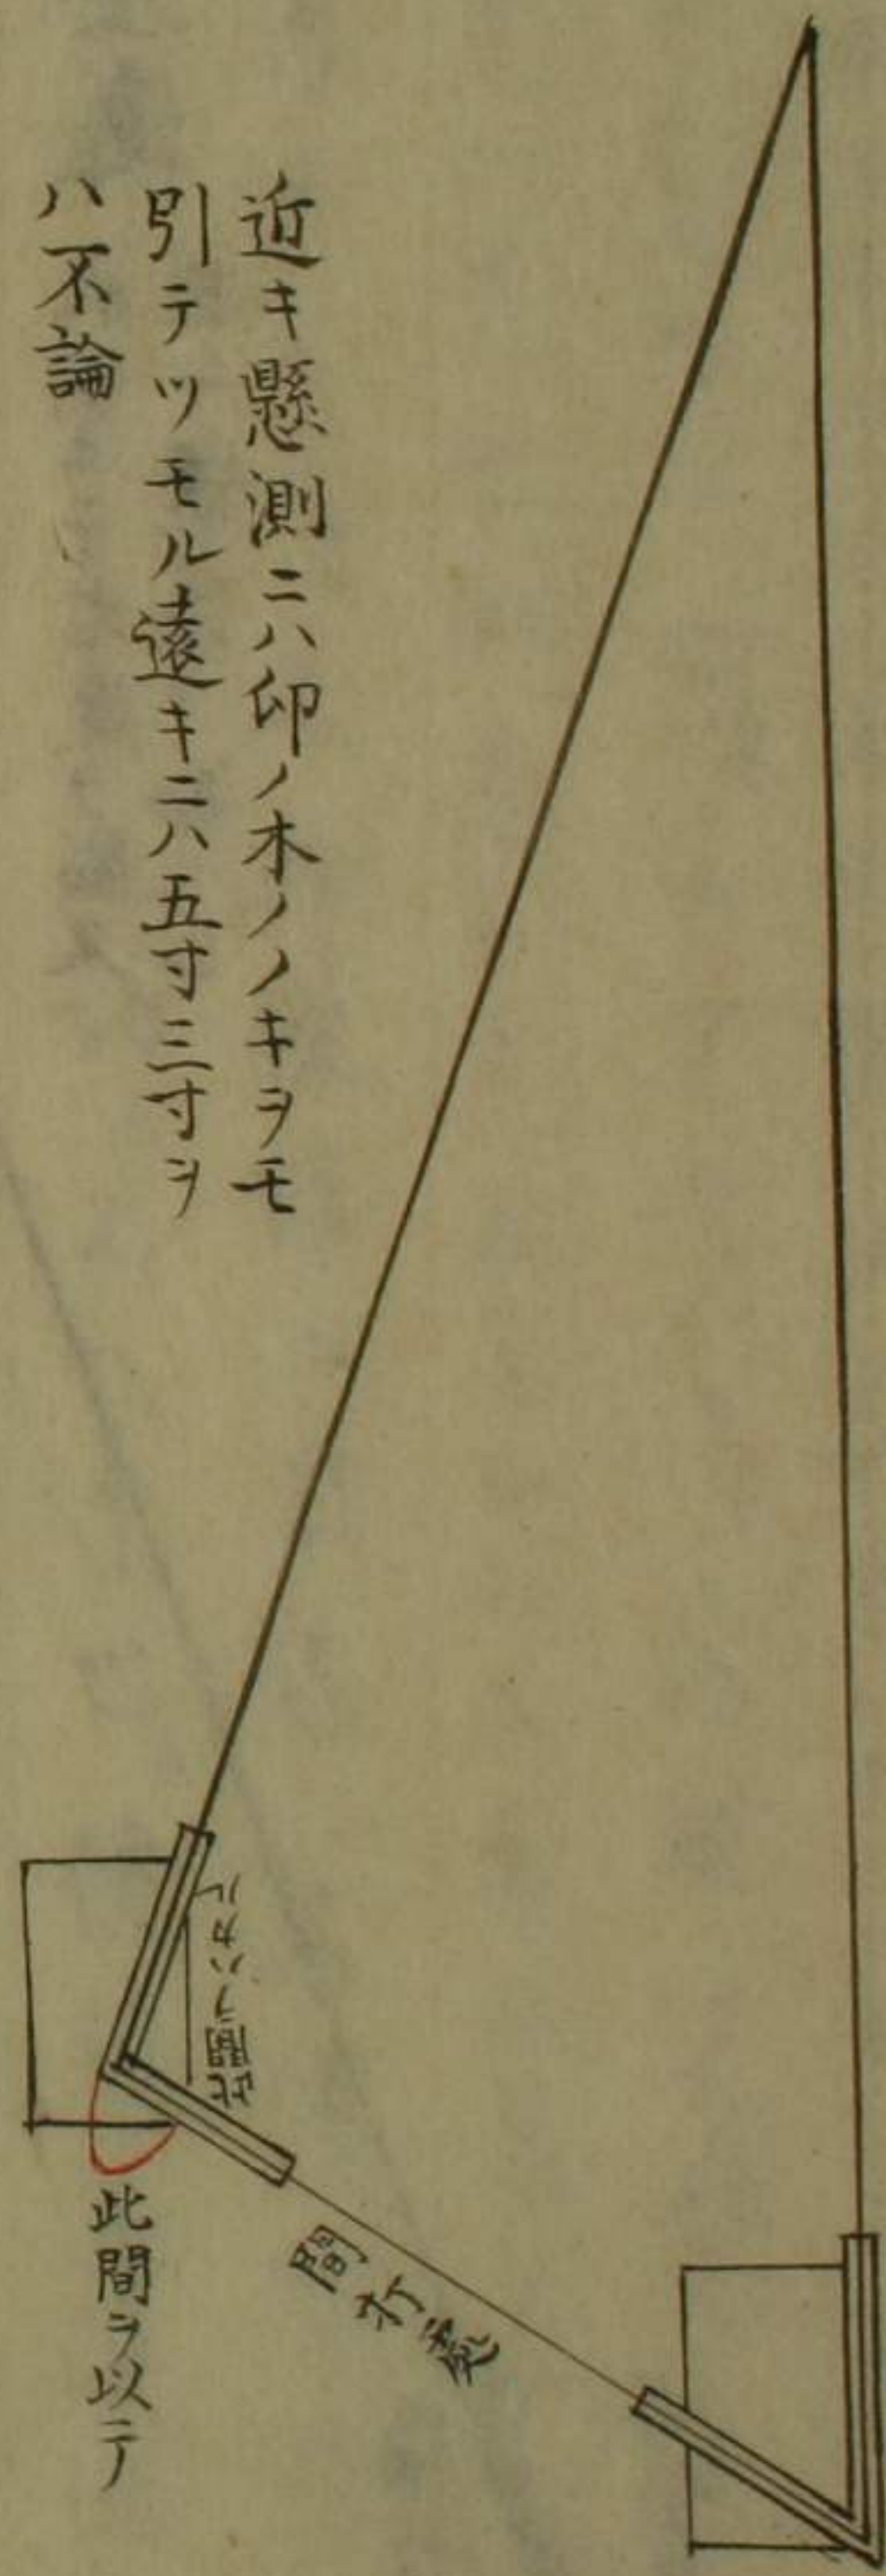 近キ懸測ニハ印ノ木ノノキヲモ
引テツモル遠キニハ五寸三寸ヲ
ハ不論
此間ヲハカル
間打處
此間ヲ以テ